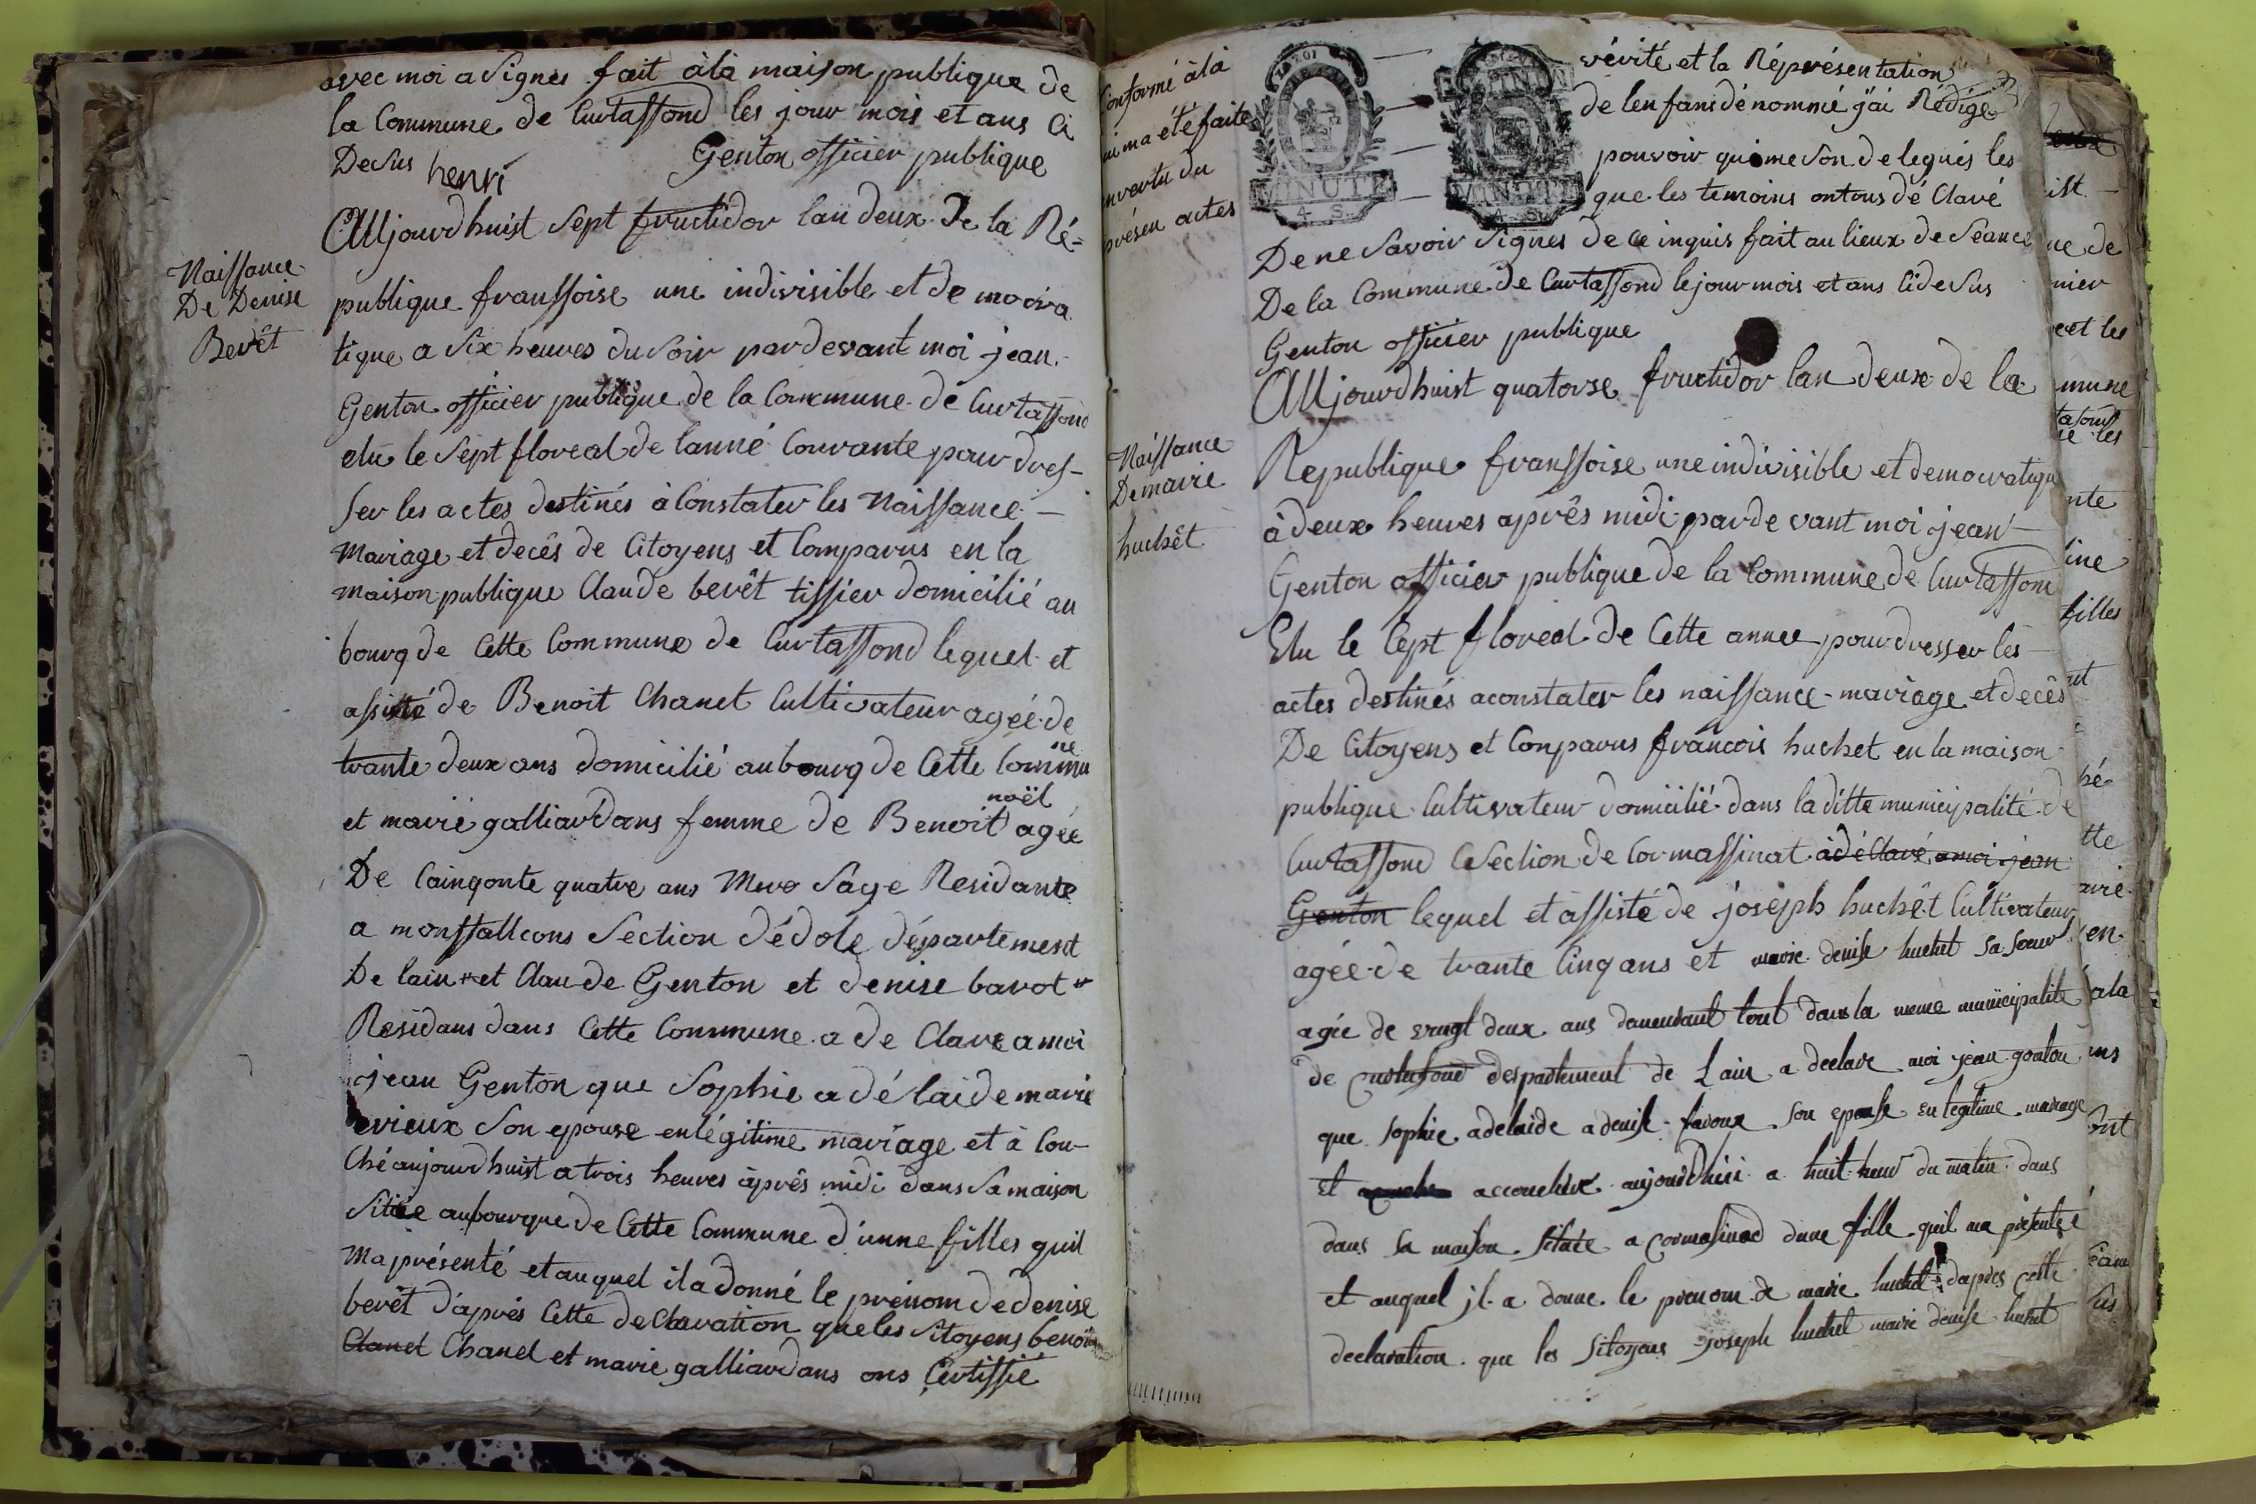 avec moi a Signés fait àla maison publique de
la Commune de Curtassond les jour mois et ans Ci
De Sus henri Genton officier publique
Naissance
De Denise
Bevêt
Aujourdhuist Sept fructidor lan deux De la Ré=
publique franssoise une indivisible et de mocira
tique a Six heures du Soir pardevant moi jean
Genton officier publique de la Commune de Curtassond
elu le Sept floreal de lanné Courante pour dres-
Ser les actes destinés à Constater les Naissance
Mariage et decês de Citoyens et Comparus en la
maison publique Claude bevêt tissier domicilié au
bourg de Cette Commune de Curtassond lequel et
assisté de Benoit Chanel Cultivateur ageé de
trante deux ans domicilié aubourg de Cette Commune
et marie galliardans femme de Benoit noël ageé
De Cainqonte quatre ans Mere Sage Residante
a monssallcons Section dédole département
De lain et Claude Genton et denise bavot
Residans dans Cette Commune a de Clare a moi
jean Genton que Sophie a dé laide marie
evieux Son epouse en légitime mariage et à Cou-
Ché aujourdhuist a trois heures àprês midi dans Sa maison
Sitúée aubourgue de Cette Commune d'unne filles quil
Ma présenté et auquel il a donné le prénom de denise
bevêt d'aprés Cette de Claration que les Sitoyens benoit
Chanel Chanel et marie galliardans ons Certissié
Conformé àla
ui ma eté faite
nvertu du
présen actes
MINUTE
4. S.
MINUTE
4. S.
vérité et la Réprésentation
de len fans dénommé j'ai Rédigé
pouvoir qui me Son de legués les
que les temoins ontous dé Claré
De ne Savoir Signes de Ce inquis fait au lieux de Seance
De la Commune de Curtassond le jour mois et ans Cide Sus
Genton officier publique
Naissance
De marie
huchêt
Aujourdhuist quatorse fructidor lan deux de la
Republique franssoise une indivisible et democratique
à deux heures aprês midi parde vant moi jean
Genton officier publique de la Commune de Curtassond
Elu le Cept floreal de Cette annee pour dresser les
actes destinés a constater les naissance mariage et decês
De Citoyens et Conparus francois huchet en la maison
publique Cultivateur domicilié dans la ditte municipalité de
Curtassond Cesection de Cormassinat à dé Claré a moi jean
Genton lequel et assisté de joseph huchêt Cultivateur
ageé de trante Cinq ans et marie denise huchet Sa Soeur
agée de vingt deux ans demeurant tout dans la meme municipalité
de Curtafond despartement de Lain a declare moi jean gonton
que Sophie adelaide a denise favoux Son epouse en legitime mariage
et accouchee aujourdhui a huit heur du matin dans
dans Sa maison Situee a Cormasinad dune fille quil ma présentée
et auquel jl a donne le prenom de marie huchet dapres cette
declaration que les Sitoyens joseph huchet marie denise huchet